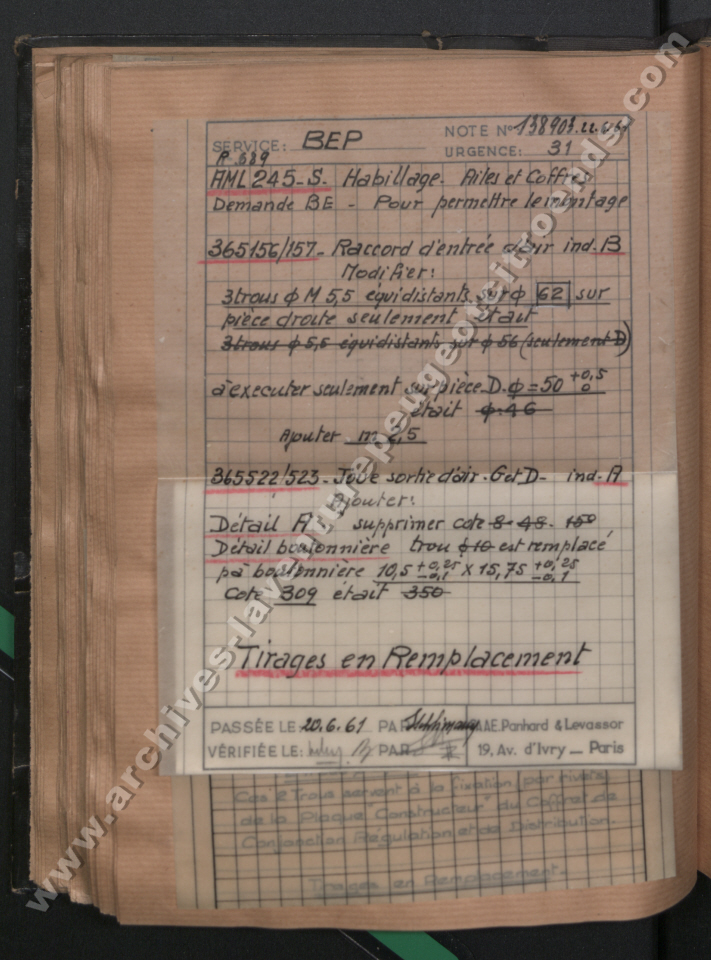 SERVICE: BEP NOTE N° 138903
R.689 URGENCE: 31
AML 245-S. Habillage. Ailes et Coffres
Demande BE - Pour permettre le montage
365156/157- Raccord d'entrée d'air ind. B
Modifier:
3 trous φ M 5,5 équidistants sur φ 62 sur
pièce droite seulement était
3 trous φ 5,5 équidistants sur φ 56 (seulement D)
à executer seulement sur pièce D. φ = 50 +0,5 0
était φ 46
Ajouter m 2,5
365522/523- sortie d'air. G et D- ind. A
Ajouter:
Détail A supprimer cote 8- 48- 15°
Détail boutonnière trou φ 10 est remplacé
pa boutonnière 10,5 +0,25 -0,1 x 15,75 +0,25 -0,1
cote 309 était 350
Tirages en Remplacement
PASSÉE LE 20.6.61 PAR AAE. Panhard & Levassor
VÉRIFIÉE LE: PAR 19, Av. d'Ivry _ Paris
Ces 2 Trous servent à la fixation (par rivets)
de la Plaque "Constructeur" du Coffret de
Conjonction Régulation et de Distribution.
Tirages en Remplacement.
www.archives-laventurepeugeotcitroends.com